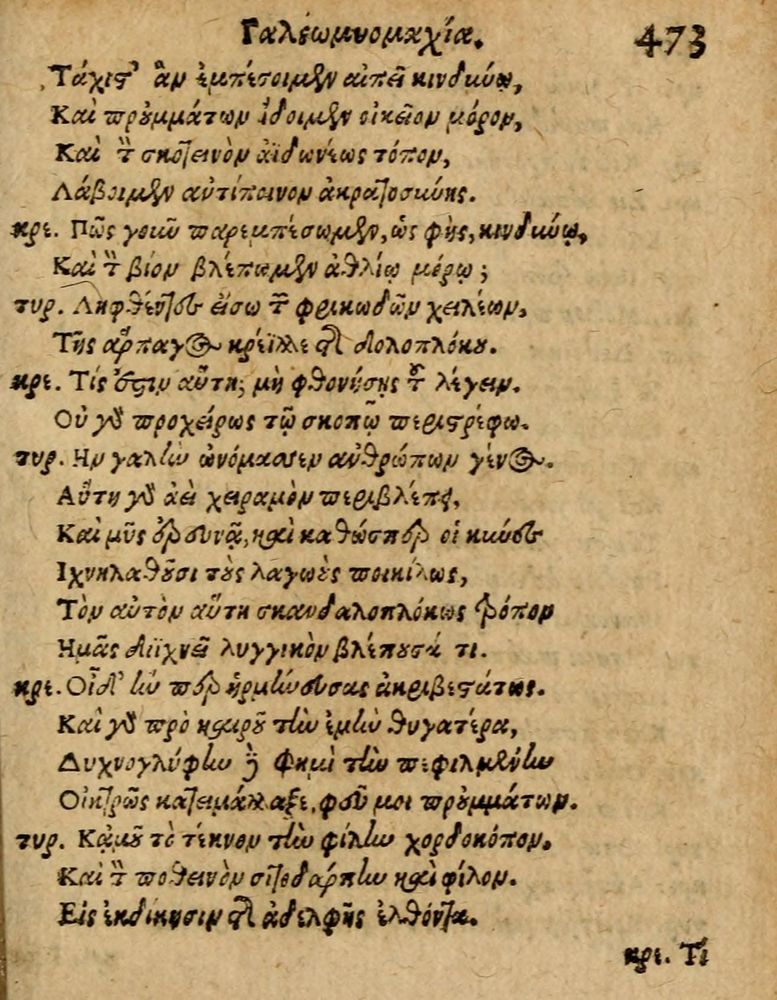 Γαλεωμυομαχία. 473
Τάχιστ' ἂν ἐμπέσοιμεν ἀπεῖ κινδύνῳ,
Καὶ πραγμάτων ἴδοιμεν οἰκεῖον μόρον,
Καὶ τὸν σκοτεινὸν ἀϊδωνέως τόπον,
Λάβοιμεν ἀντίποινον ἀκρατοσύνης.
κρε. Πῶς γοιῶ παρεμπέσωμεν, ὡς φῂς, κινδύνῳ,
Καὶ τὸν βίον βλέπωμεν ἀθλίῳ μέρῳ;
τυρ. Ληφθέντες εἴσω τῶν φρικωδῶν χειλέων,
Τῆς ἅρπαγος κρεΐλλε τῆς δολοπλόκου.
κρε. Τίς ἐστιν αὕτη; μὴ φθονήσῃς τοῦ λέγειν.
Οὐ γὰρ προχείρως τῷ σκοπῷ περιτρέφω.
τυρ. Ην γαλῆν ὠνόμασεν ἀνθρώπων γένος.
Αὕτη γὰρ ἀεὶ χειραμὸν περιβλέπει,
Καὶ μῦς ἐρευνᾷ, καὶ καθώσπερ οἱ κύνες
Ιχνηλατοῦσι τοὺς λαγωοὺς ποικίλως,
Τὸν αὐτὸν αὕτη σκανδαλοπλόκως τρόπον
Ημᾶς διϊχνεῖ λυγγικὸν βλέπουσά τι.
κρε. Οἶδ' ἣν περ ἡρμήνευσας ἀκριβεστάτως.
Καὶ γὰρ πρὸ καιροῦ τὴν ἐμὴν θυγατέρα,
Λυχνογλύφην δὲ φημὶ τὴν πεφιλμένην
Οἰκτρῶς κατειμάλαξε, φεῦ μοι πραγμάτων.
τυρ. Κᾀμοῦ τὸ τέκνον τὴν φίλην χορδοκόπον.
Καὶ τὸν ποθεινὸν σιτοδάρπτην καὶ φίλον.
Εἰς ἐκδίκησιν τῆς ἀδελφῆς ἐλθόντα.
κρε. Τί